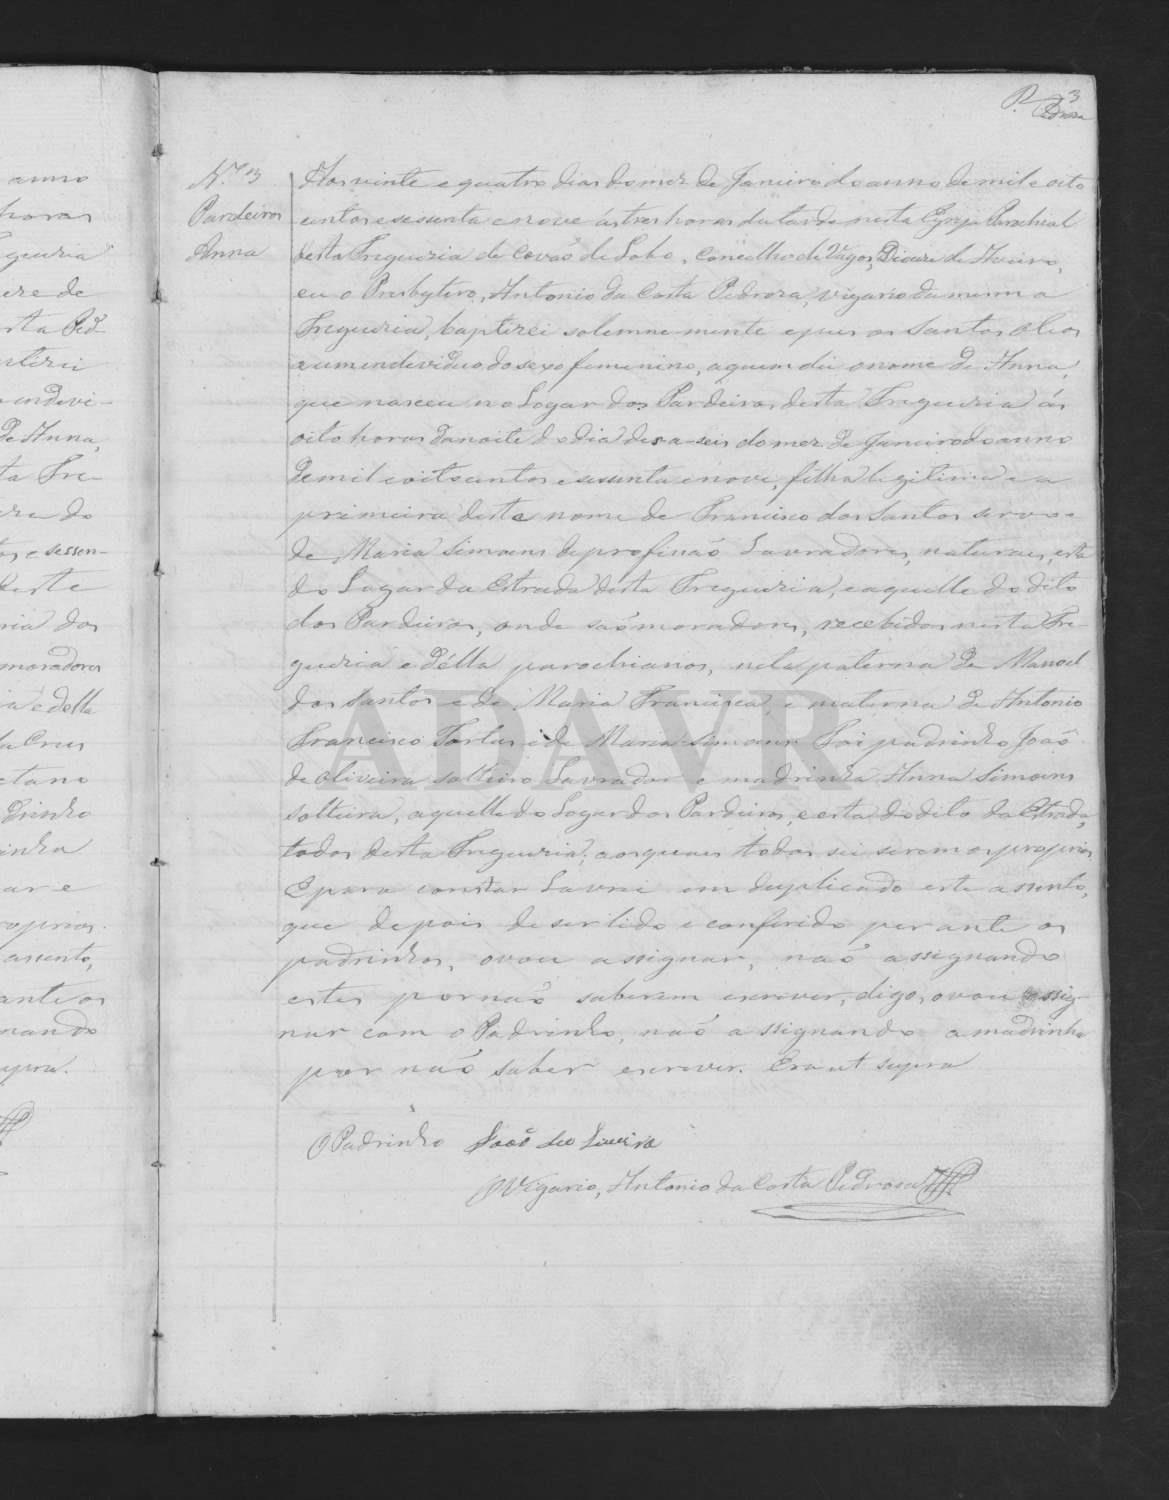 P. 3
Pedrosa
N.º 3
Pardeiros
Anna
Aos vinte e quatro dias do mez de Janeiro do anno de mil e oito
centos e sesenta e nove ás tres horas da tarde nesta Egreja Parochial
desta Freguezia de Covaõ de Lobo, Concelho de Vagos, Diocese de Aveiro,
eu o Presbytero, Antonio da Costa Pedrosa, vigario da mesma
Freguezia, baptizei solemne mente e pus os Santos oleos
a um endeviduo do sexo femenino, a quem dei o nome de Anna,
que nasceu no Logar dos Pardeiros, desta Freguezia ás
oito horas da noite do dia desa-seis do mez de Janeiro do anno
de mil e oitocentos e sesenta e nove, filha legitima e a
primeira deste nome de Francisco dos Santos
de Maria Simoens de profissaõ Lavradores, naturaes, esta
do Logar da Estrada desta Freguezia, e aquelle do dito
dos Pardeiros, onde saõ moradores, recebidos nesta Fre-
guezia e d'élla parochianos, neta paterna de Manoel
dos Santos e de Maria Francisca, e materna de Antonio
Francisco e de Maria Simoens. Foi padrinho Joaõ
de Oliveira solteiro Lavrador e madrinha Anna Simoens
solteira, aquelle do Logar dos Pardeiros, e esta do dito da Estrada,
todos desta Freguezia; aos quaes todos sei serem os proprios
E para constar Lavrei em duplicado este assento,
que depois de ser lido e conferido perante os
padrinhos, ovou assignar, naõ assignando
estes por naõ saberem escrever, digo, ovou assig-
nar com o Padrinho, naõ assignando a madrinha
por naõ saber escrever. Era ut supra
O Padrinho Joaõ de o Liveira
O Vigario, Antonio da Costa Pedrosa
ADAVR